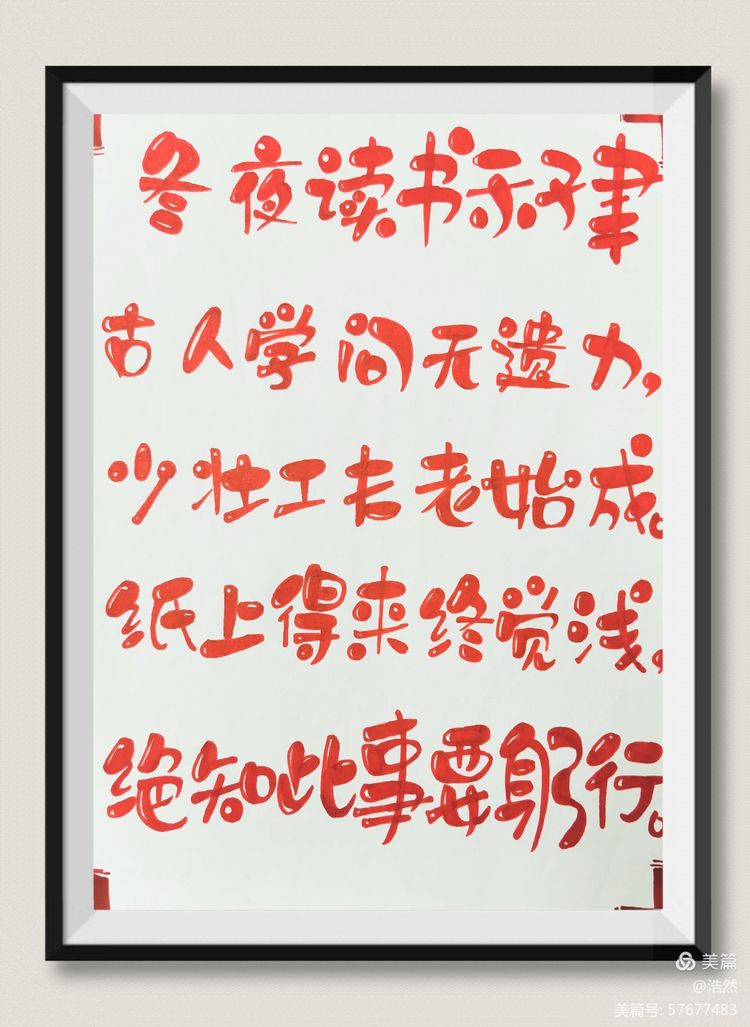 冬夜读书示子聿
古人学问无遗力，
少壮工夫老始成。
纸上得来终觉浅，
绝知此事要躬行。
美篇
@浩然
美篇号: 57677483